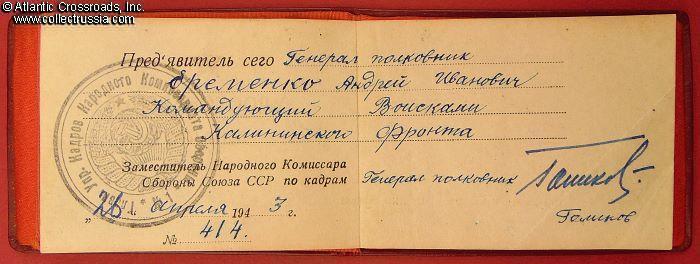 © Atlantic Crossroads, Inc.
www.collectrussia.com
Пред'явитель сего Генерал полковник
Еременко Андрей Иванович
Командующий Войсками
Калининского Фронта
Заместитель Народного Комиссара
Обороны Союза ССР по кадрам Генерал полковник Голиков
Голиков
„26" апреля 1943 г.
№ 414.
Упр. Кадров Народного Комиссариата Обороны